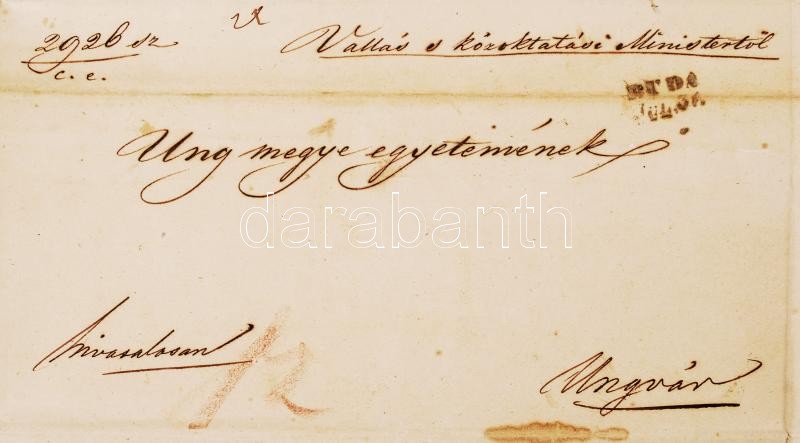 2926 sz
c. e.
Vallás s közoktatási Ministertől
BUDA
Ung megye egyetemének
darabanth
hivasalosan
Ungvár